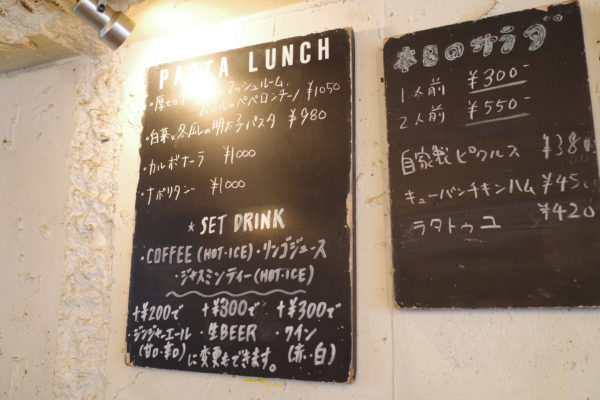 PASTA LUNCH
・厚切 マッシュルーム
のペペロンチーノ ¥1050
・白菜と のの明太子パスタ ¥980
・カルボナーラ ¥1000
・ナポリタン ¥1000
* SET DRINK
・COFFEE (HOT・ICE)・リンゴジュース
・ジャスミンティー(HOT・ICE)
+¥200で +¥300で +¥300で
・ジンジャーエール ・生BEER ・ワイン
(甘口・辛口) に変更もできます。 (赤・白)
本日のサラダ
1人前 ¥300-
2人前 ¥550-
自家製ピクルス ¥380
キューバンチキンハム ¥45
ラタトゥユ ¥420